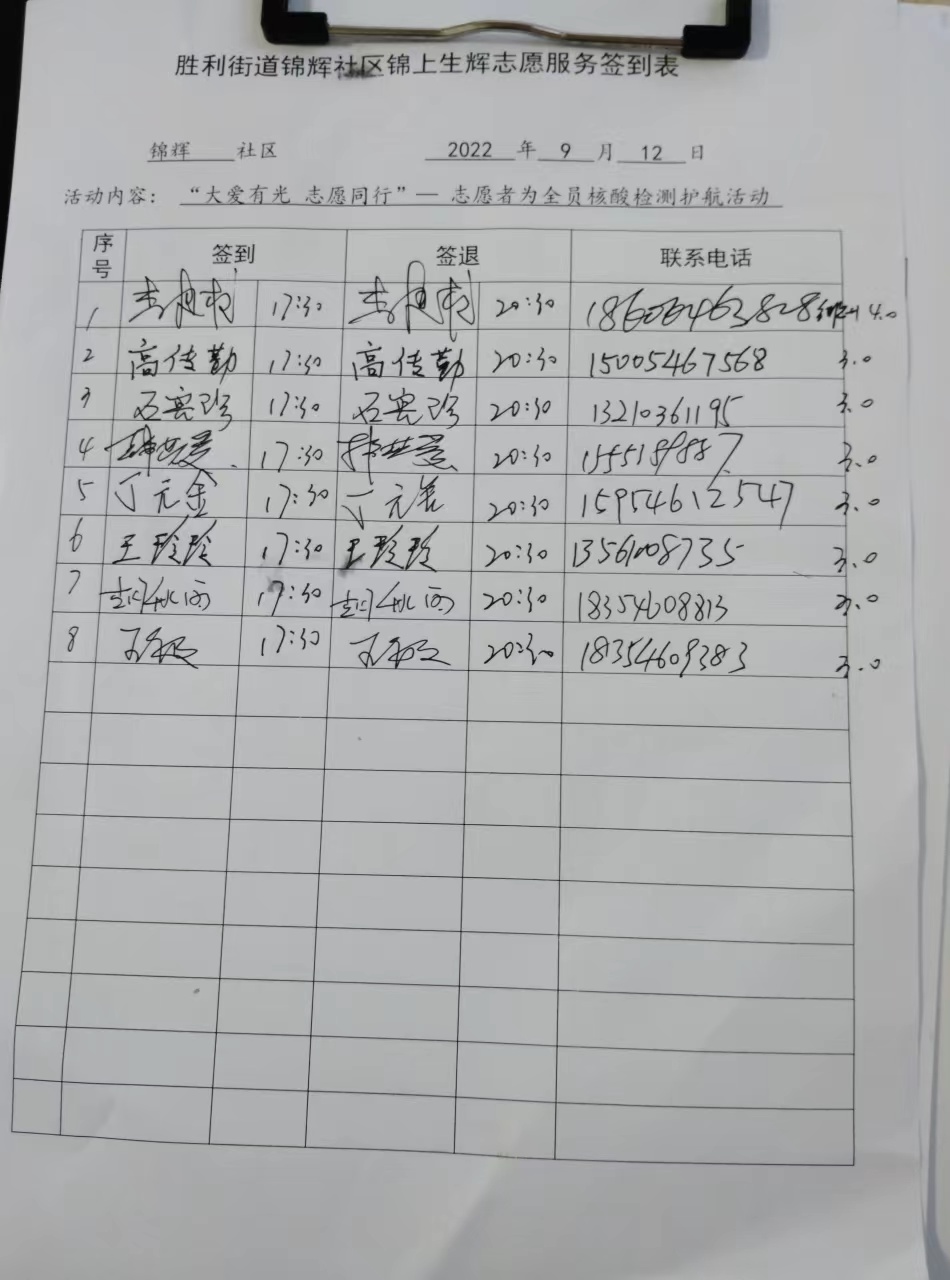 胜利街道锦辉社区锦上生辉志愿服务签到表
锦辉 社区 2022 年 9 月 12 日
活动内容: “大爱有光 志愿同行”— 志愿者为全员核酸检测护航活动
序号 签到 签退 联系电话
1 17:30 20:30 4.0
2 高传勤 17:30 高传勤 20:30 15005467568 3.0
3 17:30 20:30 13210361195 3.0
4 17:30 20:30 3.0
5 丁元金 17:30 丁元金 20:30 15954612547 3.0
6 王玲玲 17:30 王玲玲 20:30 13561008735 3.0
7 17:30 20:30 18354608813 3.0
8 17:30 20:30 18354609383 3.0